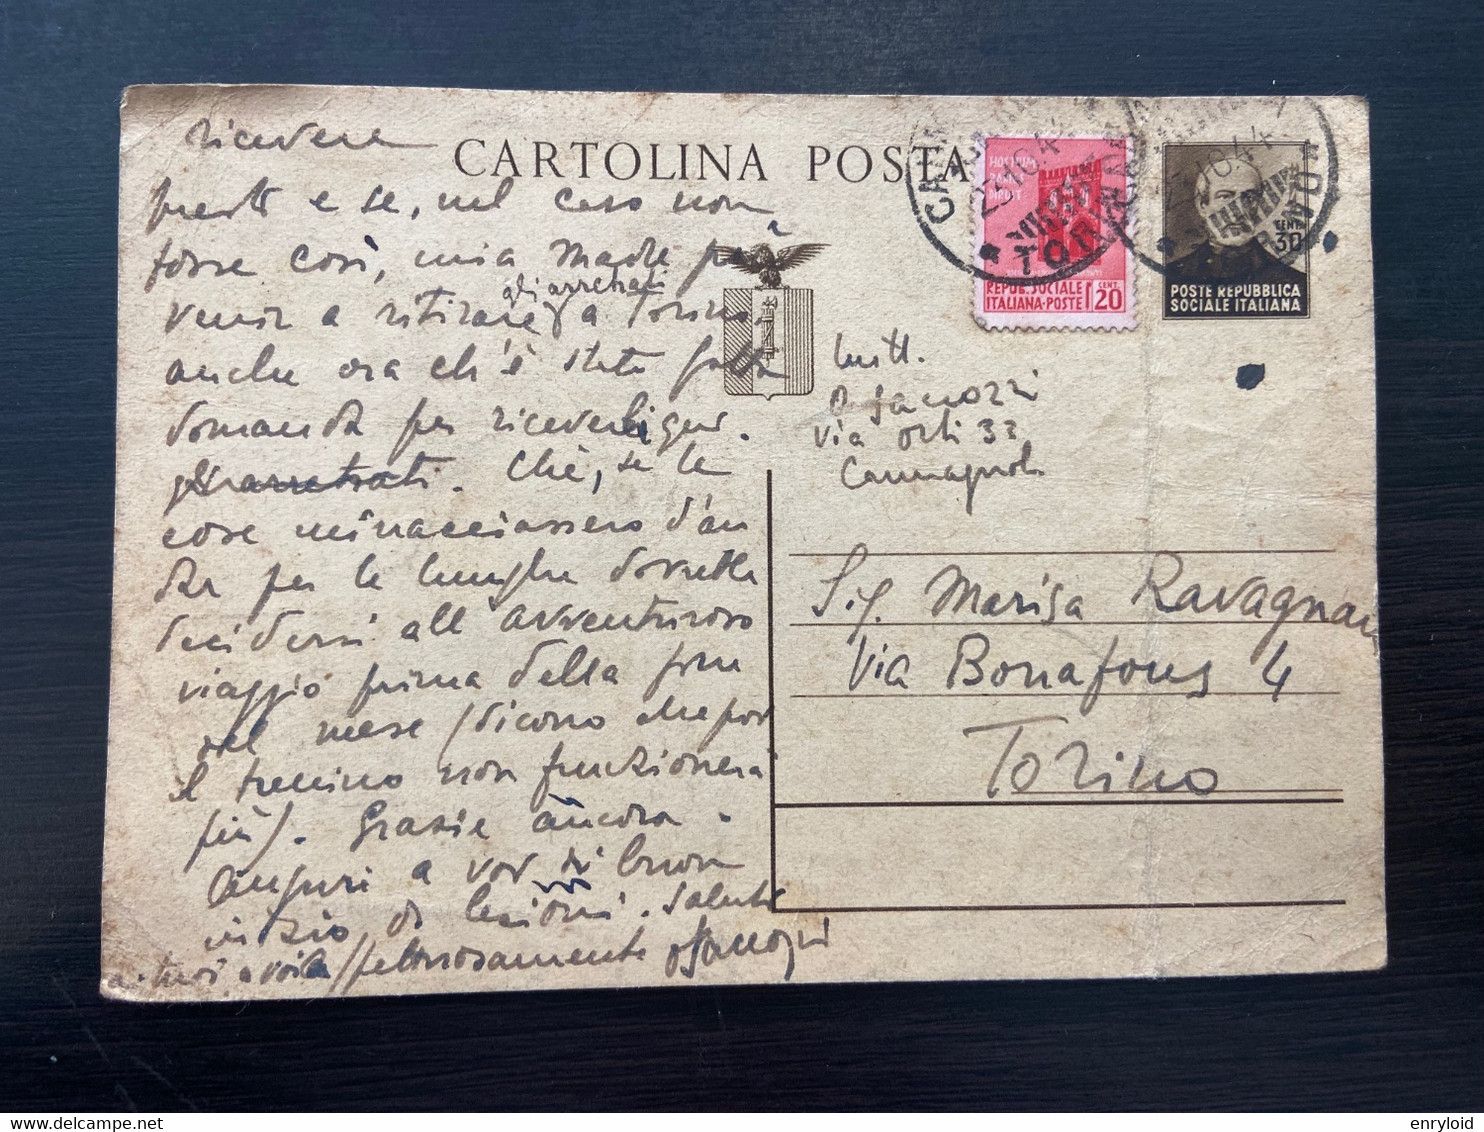 ricevere
CARTOLINA POSTA
presto e se, nel caso non
fosse così, mia madre può
gli arretrati
venir a ritirare a Torino
anche ora ch'è stata fatta
domanda per ricevere
gli arretrati. Chè, se le
cose minacciassero d'an
dar per le lunghe dovrebbe
decidersi all'avventuroso
viaggio prima della fine
del mese (dicono che poi
il trenino non funzionerà
più). Grazie ancora.
Auguri a voi di buon
inizio di lezioni. Saluti
affettuosamente
HOSTIUM
RABIES
DIRUIT
REPUB. SOCIALE
ITALIANA-POSTE
CENT.
20
CENT.
30
POSTE REPUBBLICA
SOCIALE ITALIANA
23.10.44
TORINO
Mitt.
O. Sanozzi
Via Orti 33
Carmagnola
Sig. Marisa Ravagnan
Via Bonafous 4
Torino
enryloid